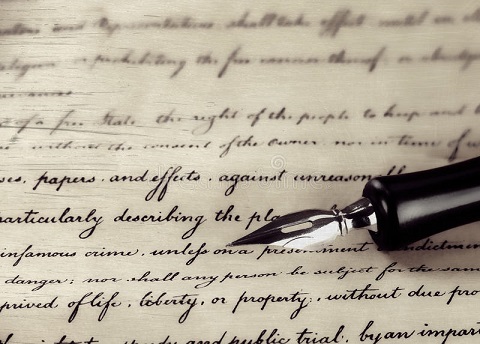 shall take effect until an
or prohibiting the free exercise thereof; or abridging
of a free State, the right of the people to keep and
without the consent of the Owner, nor in time of
papers, and effects, against unreasonable
particularly describing the pla
infamous crime, unless on a presentment indictment
danger; nor shall any person be subject for the same
prived of life, liberty, or property, without due pro
and public trial, by an impart